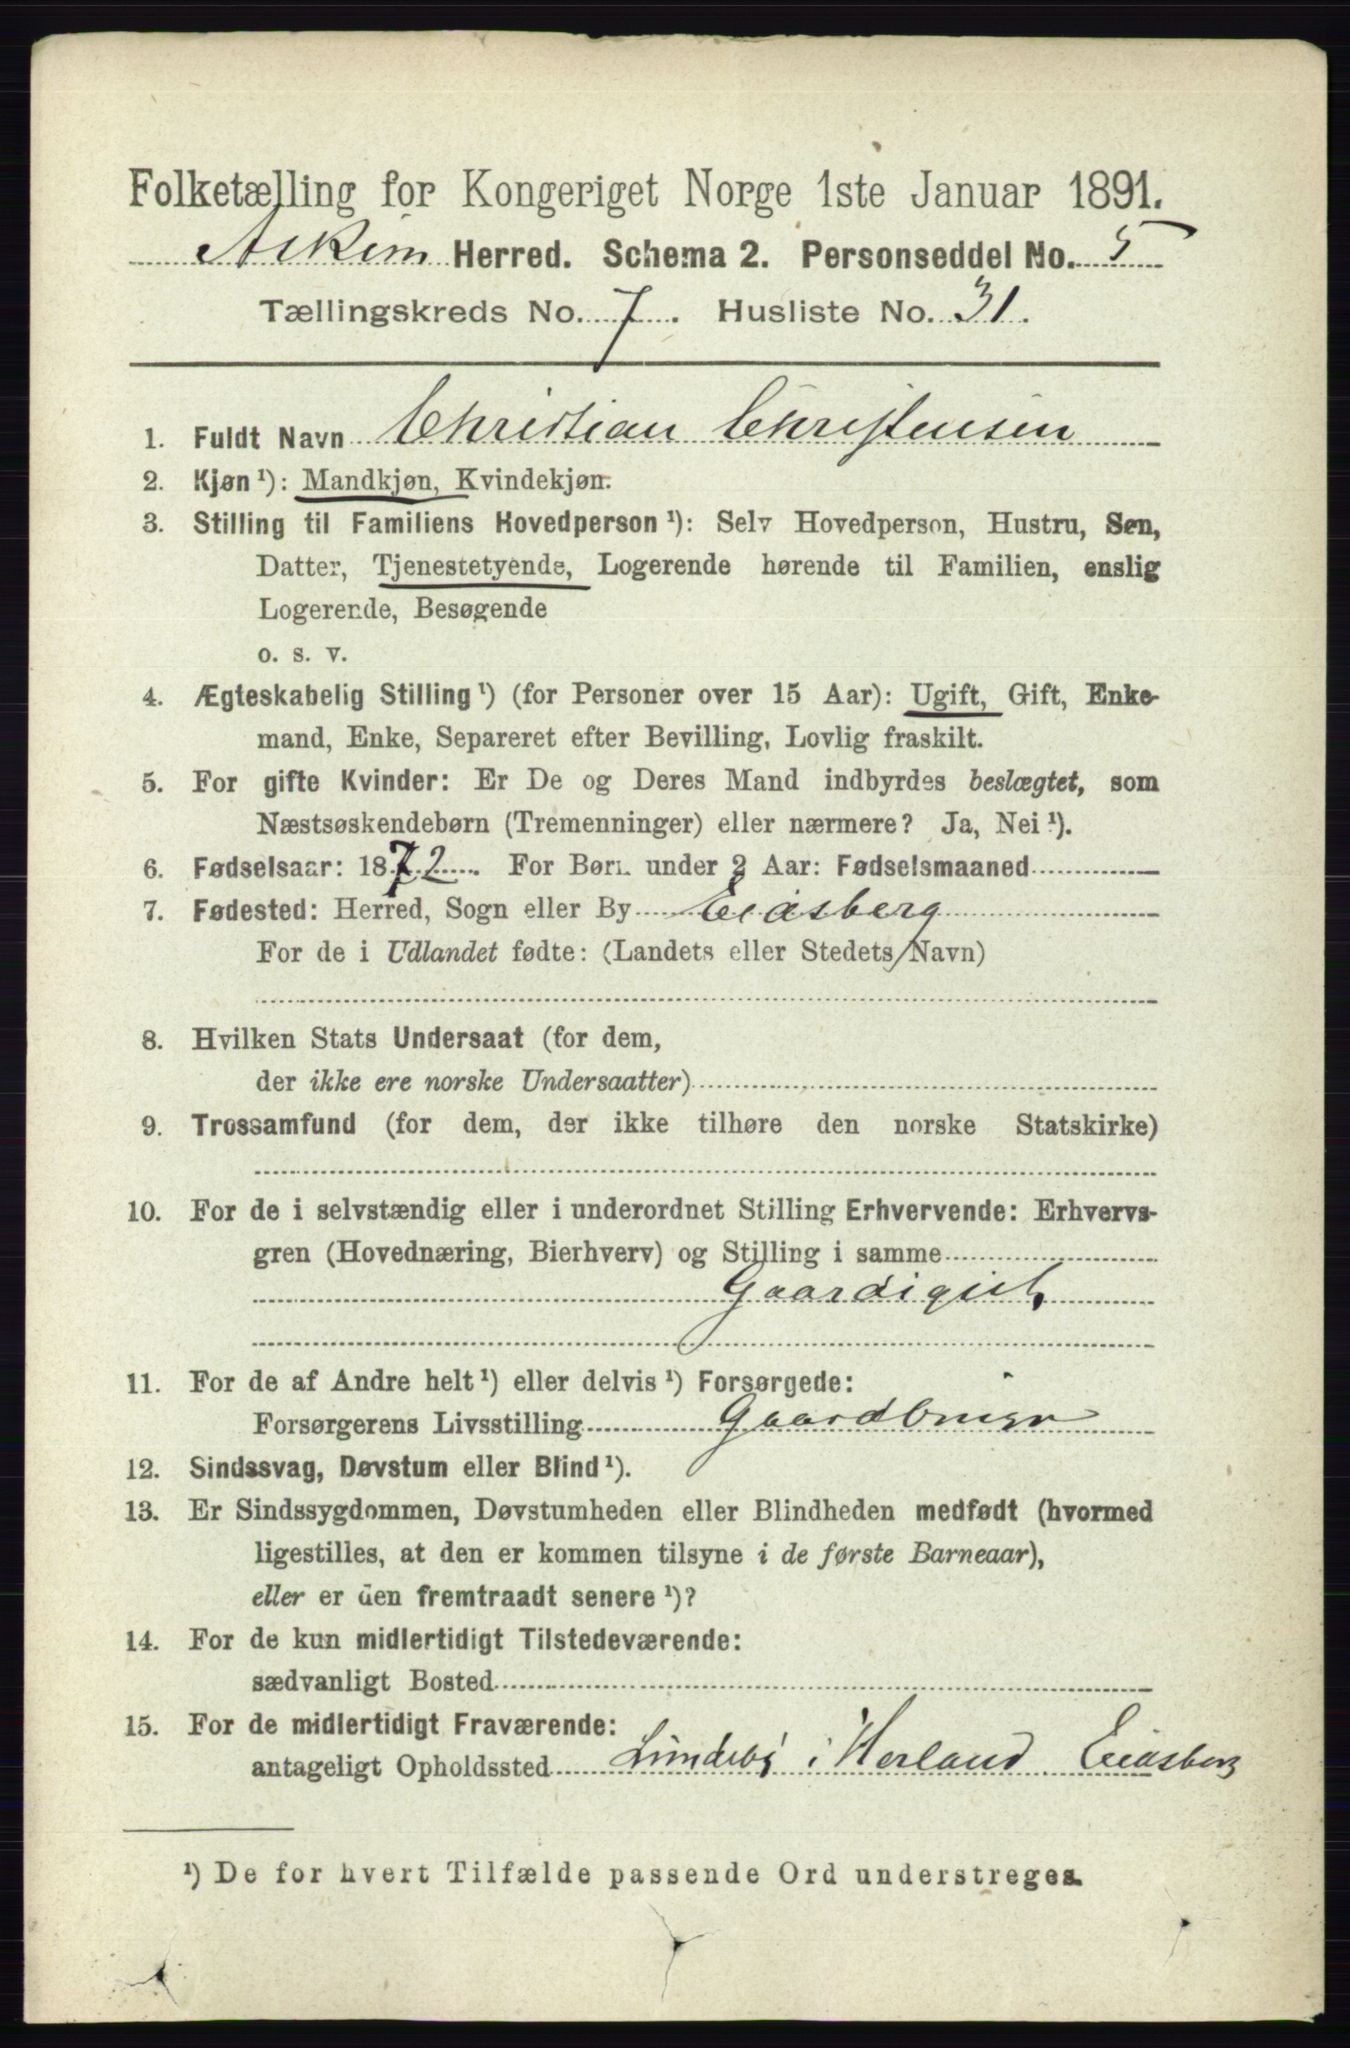 Folketælling for Kongeriget Norge 1ste Januar 1891.
Askim Herred. Schema 2. Personseddel No. 5
Tællingskreds No. 7. Husliste No. 31.
1. Fuldt Navn Christian Christensen
2. Kjøn ¹): Mandkjøn, Kvindekjøn.
3. Stilling til Familiens Hovedperson ¹): Selv Hovedperson, Hustru, Søn,
Datter, Tjenestetyende, Logerende hørende til Familien, enslig
Logerende, Besøgende
o. s. v.
4. Ægteskabelig Stilling ¹) (for Personer over 15 Aar): Ugift, Gift, Enke-
mand, Enke, Separeret efter Bevilling, Lovlig fraskilt.
5. For gifte Kvinder: Er De og Deres Mand indbyrdes beslægtet, som
Næstsøskendebørn (Tremenninger) eller nærmere? Ja, Nei ¹).
6. Fødselsaar: 1872. For Børn under 2 Aar: Fødselsmaaned
7. Fødested: Herred, Sogn eller By Eidsberg
For de i Udlandet fødte: (Landets eller Stedets Navn)
8. Hvilken Stats Undersaat (for dem,
der ikke ere norske Undersaatter)
9. Trossamfund (for dem, der ikke tilhøre den norske Statskirke)
10. For de i selvstændig eller i underordnet Stilling Erhvervende: Erhvervs-
gren (Hovednæring, Bierhverv) og Stilling i samme
11. For de af Andre helt ¹) eller delvis ¹) Forsørgede:
Forsørgerens Livsstilling Gaardbruger
12. Sindssvag, Døvstum eller Blind ¹).
13. Er Sindssygdommen, Døvstumheden eller Blindheden medfødt (hvormed
ligestilles, at den er kommen tilsyne i de første Barneaar),
eller er den fremtraadt senere ¹)?
14. For de kun midlertidigt Tilstedeværende:
sædvanligt Bosted
15. For de midlertidigt Fraværende:
antageligt Opholdssted Lundeby i Herland Eidsberg
¹) De for hvert Tilfælde passende Ord understreges.